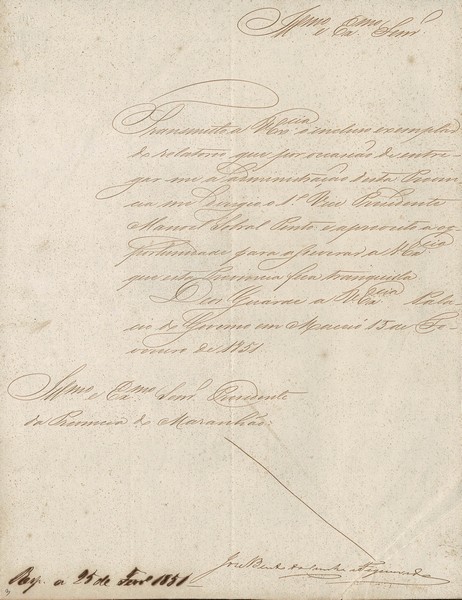 Illmo e Exmo Senr.
Transmitto a V Excia o incluso exemplar
do relatorio que por occasião de entre-
gar me a administração desta Provin-
cia me dirigio o 1º Vice Presidente
Manoel Sobral Pinto e aproveito a op-
portunidade para asseverar a V Excia
que esta Provincia fica tranquilla
Deos Guarde a V Excia Pala-
cio do Governo em Maceió 15 de Fe-
vereiro de 1851
Illmo e Exmo Senr. Presidente
da Provincia do Maranhão.
José Bento da Cunha e Figueiredo
Resp. a 25 de Fevro 1851